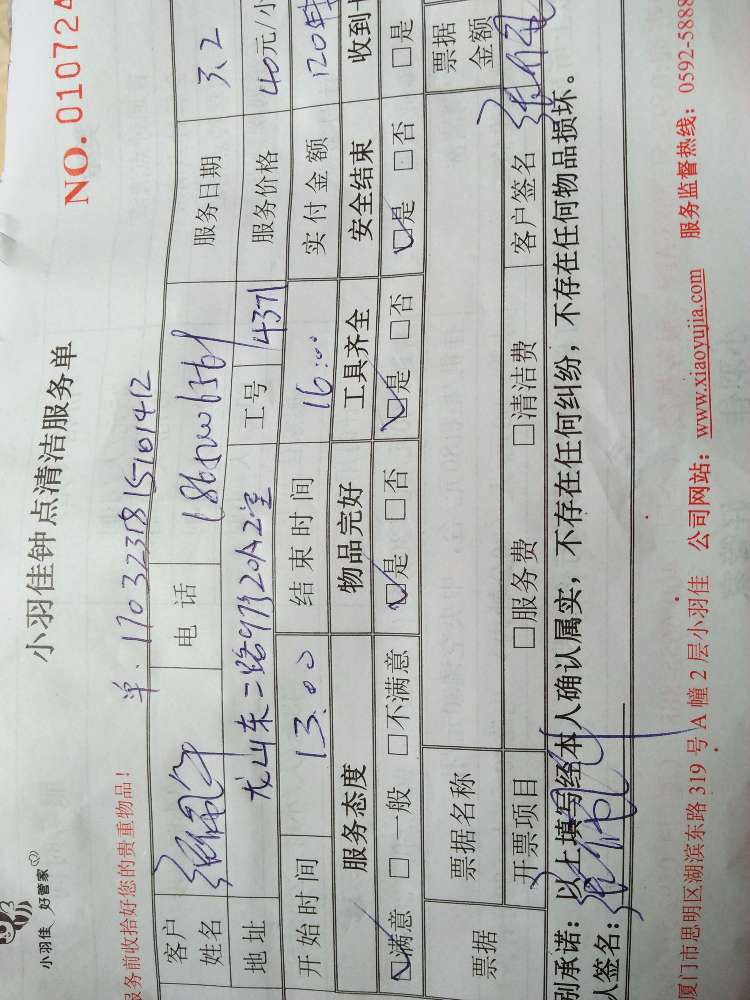 小羽佳 好管家
小羽佳钟点清洁服务单
NO. 01072
服务前收拾好您的贵重物品！
单. 1703231815701412
客户姓名 电话 服务日期 3.2
地址 龙山东二路 工号 4371 服务价格 40元/小
开始时间 13.00 结束时间 16:00 实付金额 120
服务态度 物品完好 工具齐全 安全结束 收到
☑满意 □一般 □不满意 ☑是 □否 ☑是 □否 ☑是 □否 □是
票据 票据名称 票据金额
开票项目 □服务费 □清洁费 客户签名
别承诺：以上填写经本人确认属实，不存在任何纠纷，不存在任何物品损坏。
人签名：
厦门市思明区湖滨东路 319 号 A 幢 2 层小羽佳 公司网站：www.xiaoyujia.com 服务监督热线：0592-5888